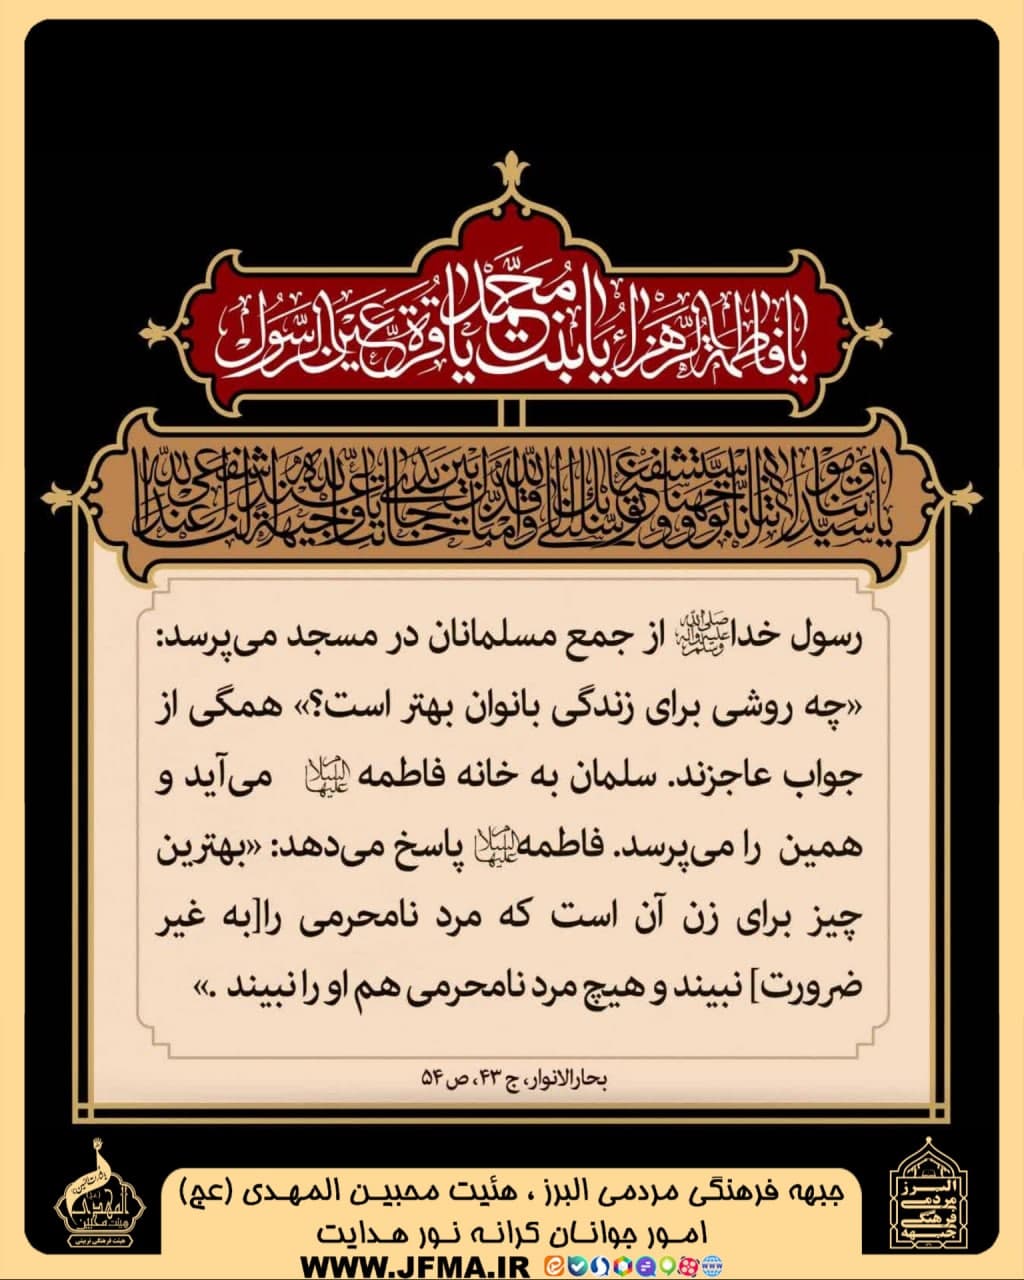 یا فاطمة الزهراء یا بنت محمد یا قرة عین الرسول
یا سیدتنا و مولاتنا انا توجهنا و استشفعنا و توسلنا بک الی الله و قدمناک بین یدی حاجاتنا یا وجیهة عند الله اشفعی لنا عند الله
رسول خداﷺ از جمع مسلمانان در مسجد می‌پرسد:
«چه روشی برای زندگی بانوان بهتر است؟» همگی از
جواب عاجزند. سلمان به خانه فاطمه علیها السلام می‌آید و
همین را می‌پرسد. فاطمه علیها السلام پاسخ می‌دهد: «بهترین
چیز برای زن آن است که مرد نامحرمی را[به غیر
ضرورت] نبیند و هیچ مرد نامحرمی هم او را نبیند .»
بحارالانوار، ج ۴۳، ص ۵۴
المهدی
هیئت محبین
هیئت فرهنگی تربیتی
البرز
مردمی
فرهنگی
جبهه
جبهه فرهنگی مردمی البرز ، هئیت محبین المهدی (عج)
امور جوانان کرانه نور هدایت
WWW.JFMA.IR